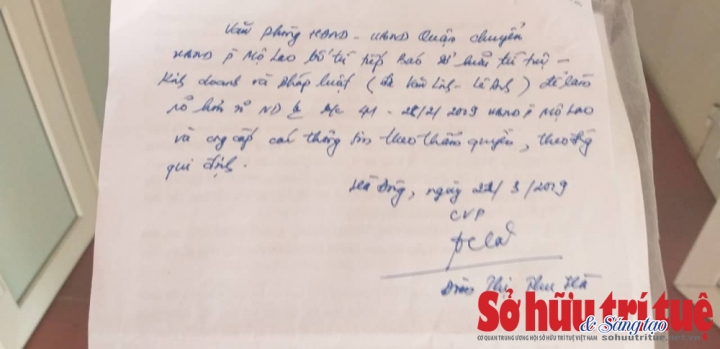 Văn phòng HĐND - UBND Quận chuyển
UBND P Mộ Lao bố trí tiếp Báo Sở hữu trí tuệ -
Kinh doanh và pháp luật ( - Lê Anh ) để làm
rõ hơn 41 - 28/2/2019 UBND P Mộ Lao
và cung cấp các thông tin theo thẩm quyền, theo
qui định.
Hà Đông, ngày 22/3/2019
CVP
Thị Thu Hà
Sở hữu trí tuệ
& Sáng tạo
CƠ QUAN TRUNG ƯƠNG HỘI SỞ HỮU TRÍ TUỆ VIỆT NAM
sohuutritue.net.vn